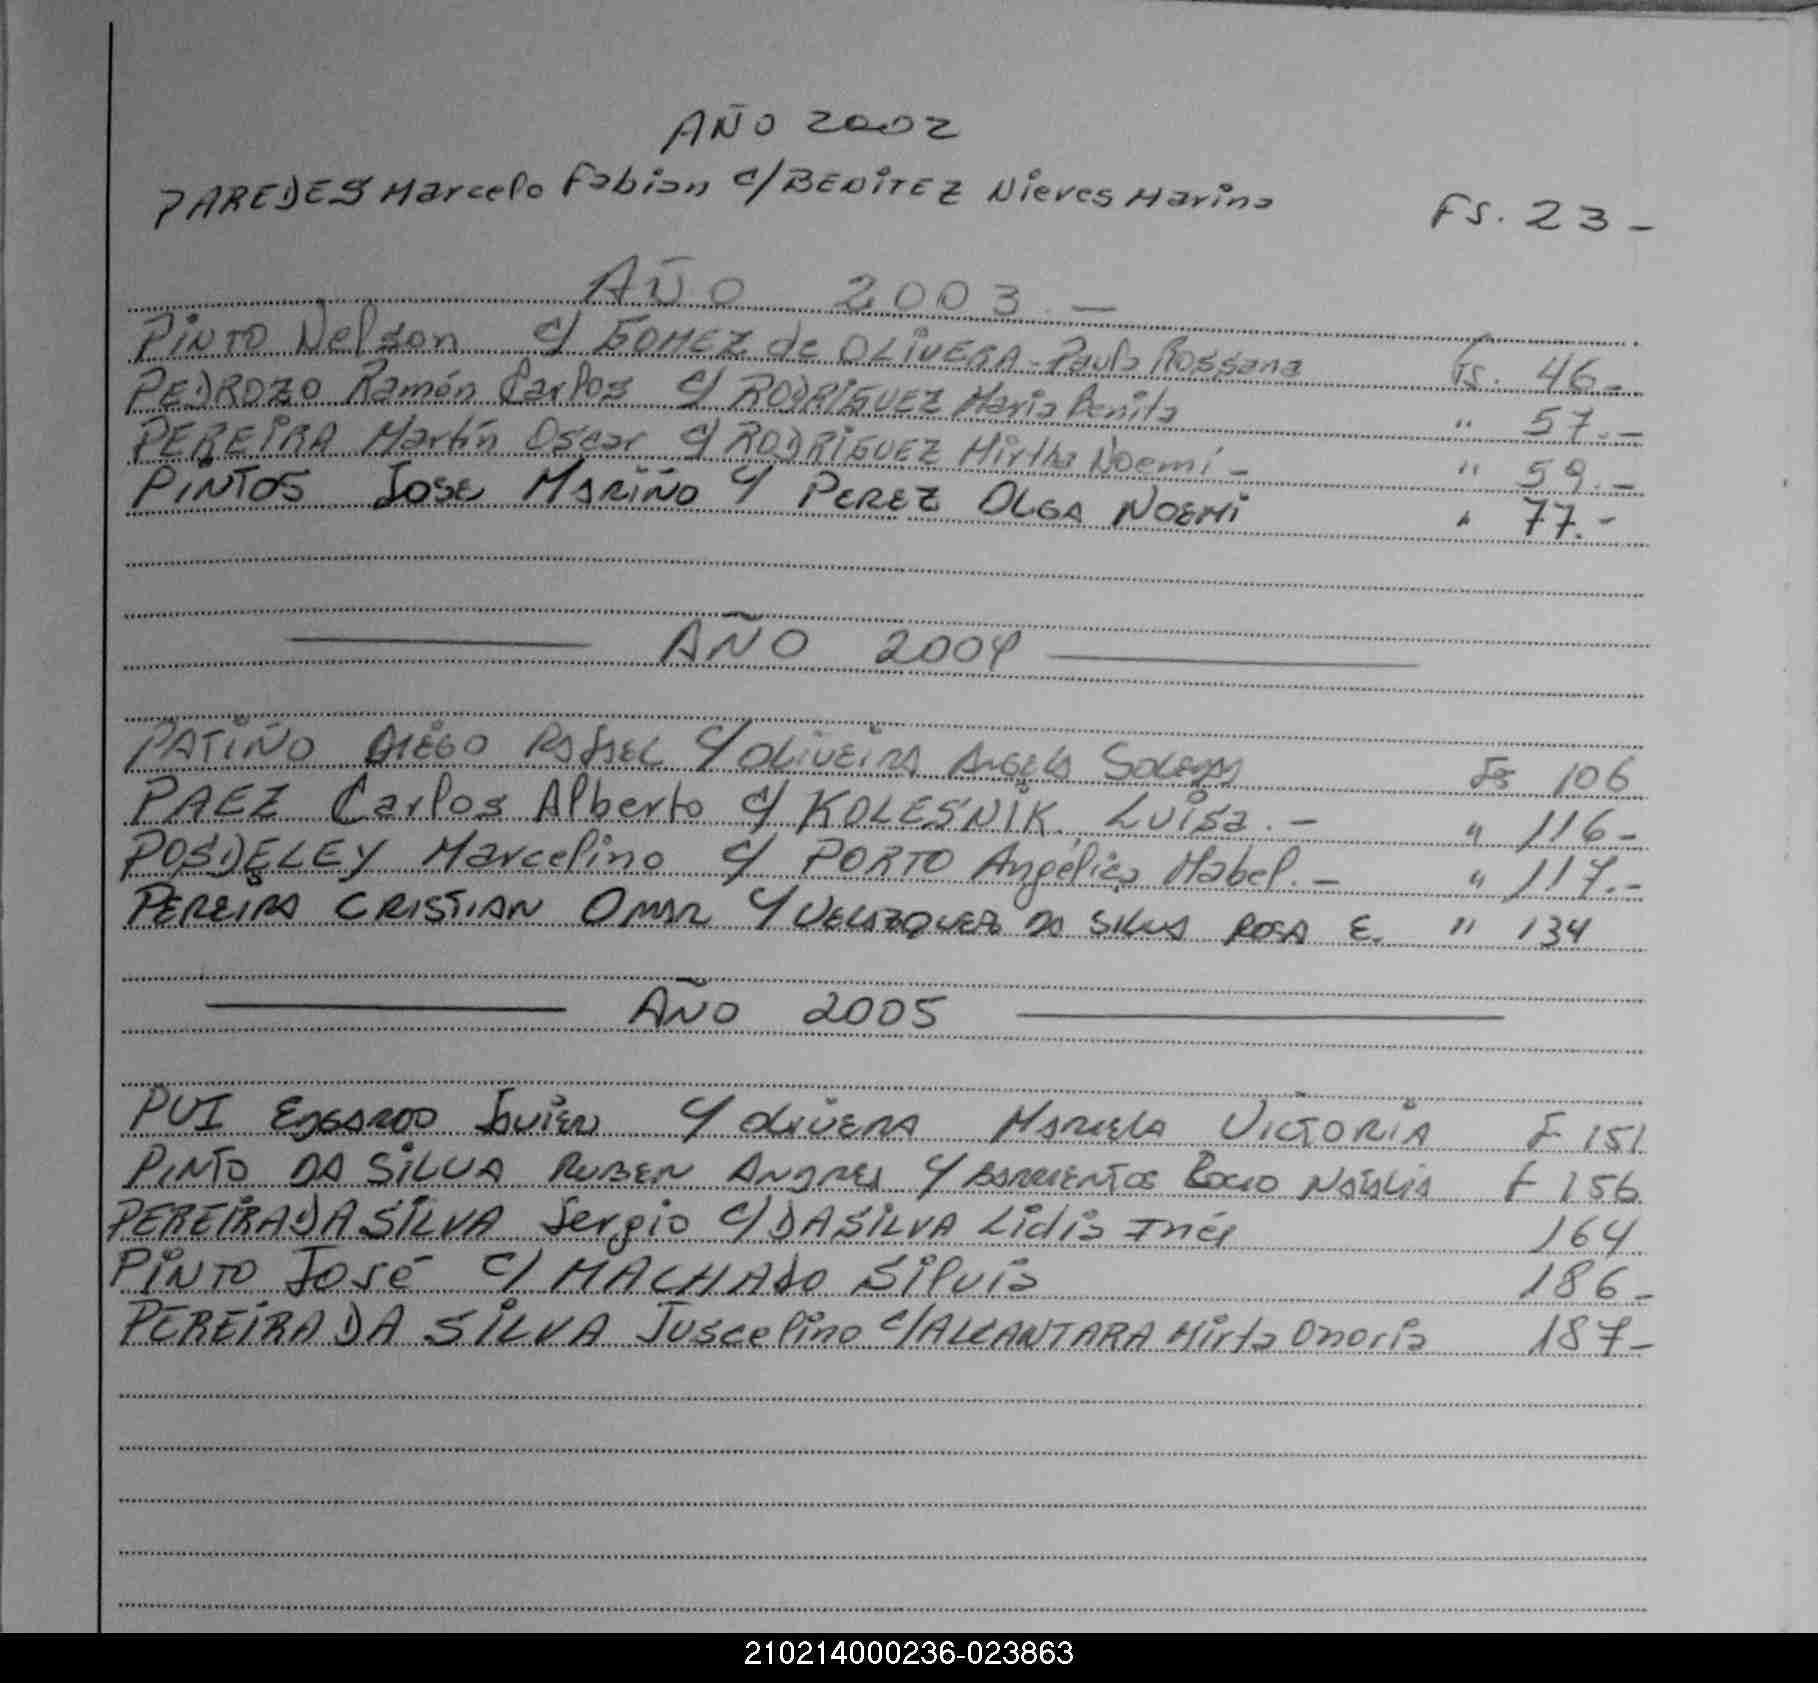 AÑO 2002
PAREDES Marcelo Fabian c/ BENITEZ Nieves Marina Fs. 23-
AÑO 2003.-
PINTO Nelson c/ GOMEZ de OLIVERA Paula Rossana Fs. 46-
PEDROZO Ramón Carlos c/ RODRIGUEZ Maria Benita " 57.-
PEREIRA Martín Oscar c/ RODRIGUEZ Mirtha Noemí- " 59.-
PINTOS Jose Mariño c/ PEREZ OLGA NOEMI " 77.-
AÑO 2004
PATIÑO DIEGO RAFAEL c/ OLIVEIRA Angela Fs 106
PAEZ Carlos Alberto c/ KOLESNIK, Luisa.- " 116-
POSDELEY Marcelino c/ PORTO Angélica Mabel.- " 117.-
PEREIRA CRISTIAN OMAR c/ VELAZQUEZ DA SILVA ROSA E. " 134
AÑO 2005
PUI EDGARDO Javier c/ OLIVERA MARIELA VICTORIA F 151
PINTO DA SILVA RUBEN ANDRES c/ BARRIENTOS ROCIO NATALIA F 156
PEREIRA DA SILVA Sergio c/ DA SILVA Lidia Inés 164
PINTO José c/ MACHADO Silvia 186-
PEREIRA DA SILVA Juscelino c/ ALCANTARA Mirta Onoria 187-
210214000236-023863